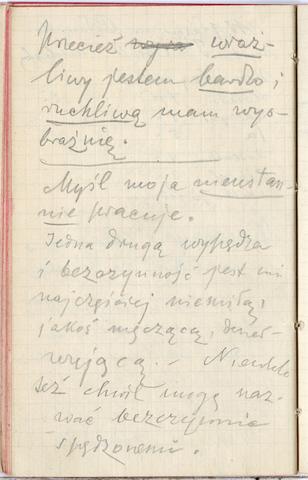 przecież wraż-
liwy jestem bardzo i
ruchliwą mam wyo-
braźnię.
Myśl moja nieustan-
nie pracuje.
Jedna drugą wypędza
i bezczynność jest mi
najczęściej niemiłą,
jakoś męczącą, dener-
wującą. – Niewiele
też chwil mogę naz-
wać bezczynnie
spędzonemi.